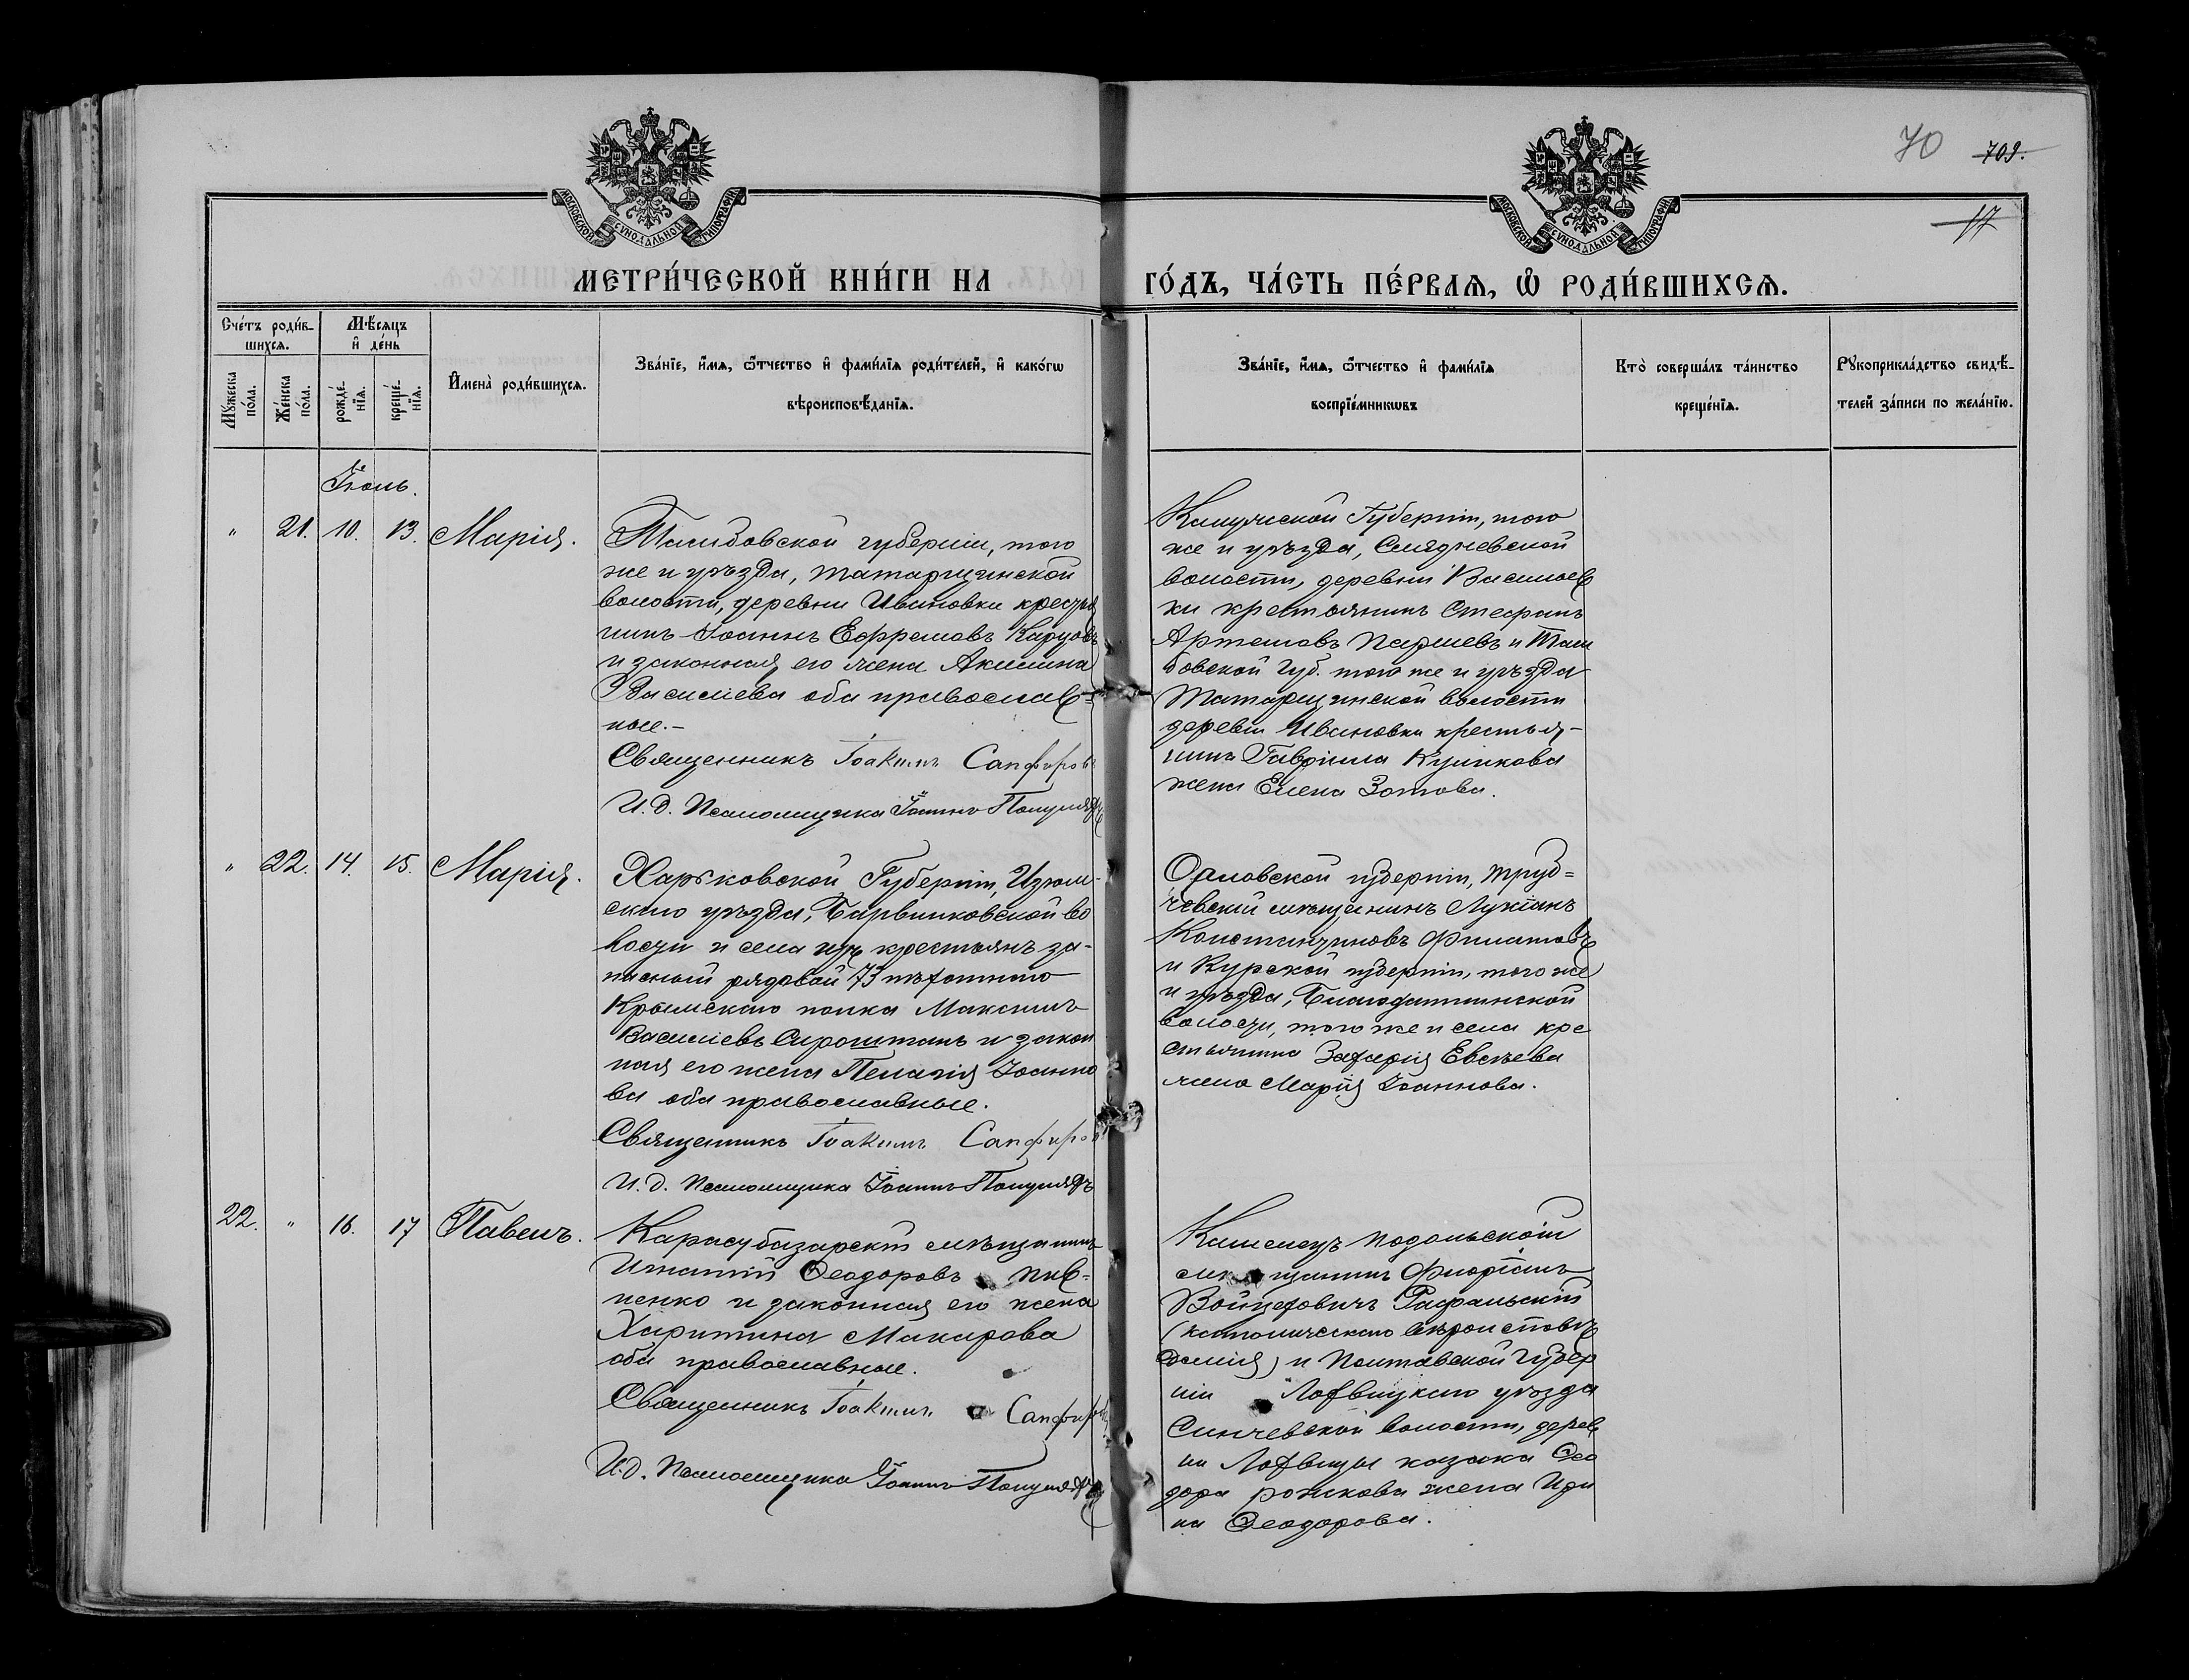 70 709.
17
МОСКОВСКОЙ СУНОДАЛЬНОЙ ТИПОГРАФІИ
МОСКОВСКОЙ СУНОДАЛЬНОЙ ТИПОГРАФІИ
МЕТРИ́ЧЕСКОЙ КНИ́ГИ НА ГО́ДЪ, ЧА́СТЬ ПЕ́РВАѦ, Ѡ҆ РОДИ́ВШИХСѦ.
Сче́тъ роди́в-
шихсѧ.
Мѣ́сѧцъ
и҆ де́нь
Мꙋ́жеска
по́ла.
Же́нска
по́ла.
рожде́-
нїѧ.
креще́-
нїѧ.
И҆мена̀ роди́вшихсѧ.
Зва́нїе, и҆́мѧ, ѻ҆́тчество и҆ фами́лїѧ роди́телей, и҆ како́гѡ
вѣроисповѣ́данїѧ.
Зва́нїе, и҆́мѧ, ѻ҆́тчество и҆ фами́лїѧ
воспрїе́мникѡвъ
Кто̀ соверша́лъ та́инство
креще́нїѧ.
Рꙋкоприкла́дство свидѣ́-
телей за́писи по жела́нїю.
Іюль.
" 21. 10. 13. Марія.
Тамбовской губерніи, того
же и уѣзда, Татарщинской
волости, деревни Ивановки крестья
нинъ Іоаннъ Ефремовъ
и законная его жена Акилина
Василіева оба православ=
ные.-
Священникъ Іоакимъ Сапфировъ
И. д. Псаломщика Іоаннъ
Калужской Губерніи, того
же и уѣзда,
волости, деревни Васильев
ки крестьянинъ Стефанъ
Артемовъ и Там
бовской Губ. того же и уѣзда
Татарщинской волости
деревни Ивановки крестья-
нина Гавріила Куликова
жена Елена Зотова.
" 22. 14. 15. Марія.
Харьковской Губерніи, Изюм-
скаго уѣзда, Барвинковской во
лости и села изъ крестьянъ за-
пасный рядовой 73 пѣхотнаго
Крымскаго полка Максимъ
Василіевъ Сироштанъ и закон
ная его жена Пелагія Іоанно
ва оба православные.
Священникъ Іоакимъ Сапфиров
И. д. Псаломщика Іоаннъ
Орловской губерніи, Труб=
чевскій мѣщанинъ Лукіанъ
Константиновъ Филатовъ
и Курской губерніи, того же
и уѣзда, Благодатинской
волости, того же и села кре
стьянина Захарія Евсѣева
жена Марія Іоаннова.
22. " 16. 17 Павелъ.
Карасубазарскій мѣщанинъ
Игнатій Ѳеодоровъ Пив-
ненко и законная его жена
Харитина Макарова
оба православные.
Священникъ Іоакимъ Сапфировъ
И. д. Псаломщика Іоаннъ
Каменецъ Подольскій
мѣщанинъ Флоріанъ
Войцеховичъ Рафальскій
(католическаго вѣроисповѣ
данія) и Полтавской Губер
ніи Лохвицкаго уѣзда
Сенчевской волости, дерев
ни Лохвицы казака Ѳео
дора Рожкова жена Ири
на Ѳеодорова.